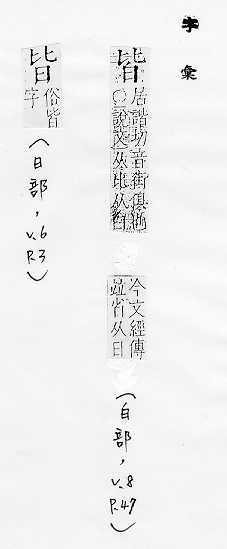 字彙
皆 居諧切音街俱也
○說文从比从白
今文經傳
竝省从日
(白部, v.8 P.49)
㫮 俗皆
字
(日部, v.6 P.3)